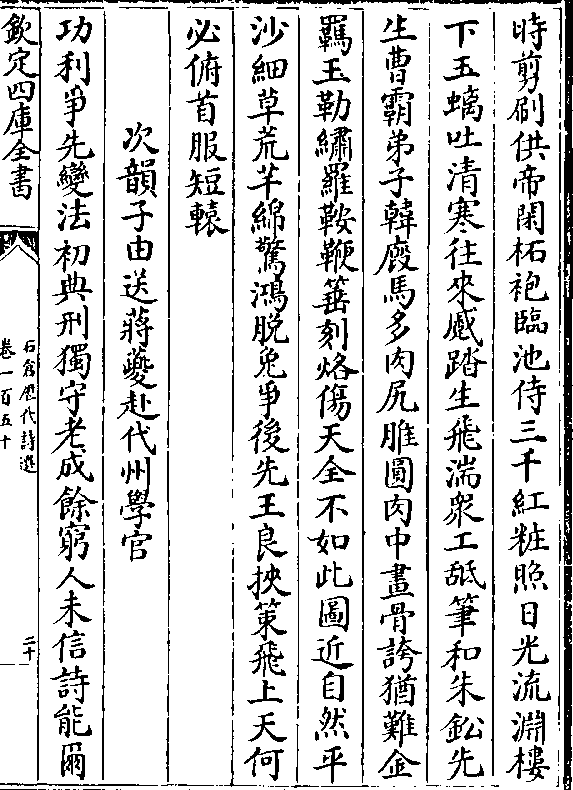 時剪刷供帝閑柘袍臨池侍三千紅粧照日光流淵樓
下玉螭吐清寒往來蹙踏生飛湍衆工舐筆和朱鈆先
生曹霸弟子韓廄馬多肉尻脽圓肉中畫骨誇猶難金
羈玉勒繡羅鞍鞭箠刻烙傷天全不如此圖近自然平
沙細草荒芊綿驚鴻脱兔爭後先王良挾策飛上天何
必俯首服短轅
次韻子由送蔣夔赴代州學官
功利爭先變法初典刑獨守老成餘窮人未信詩能爾
欽定四庫全書
石倉歷代詩選
卷一百五十
二十